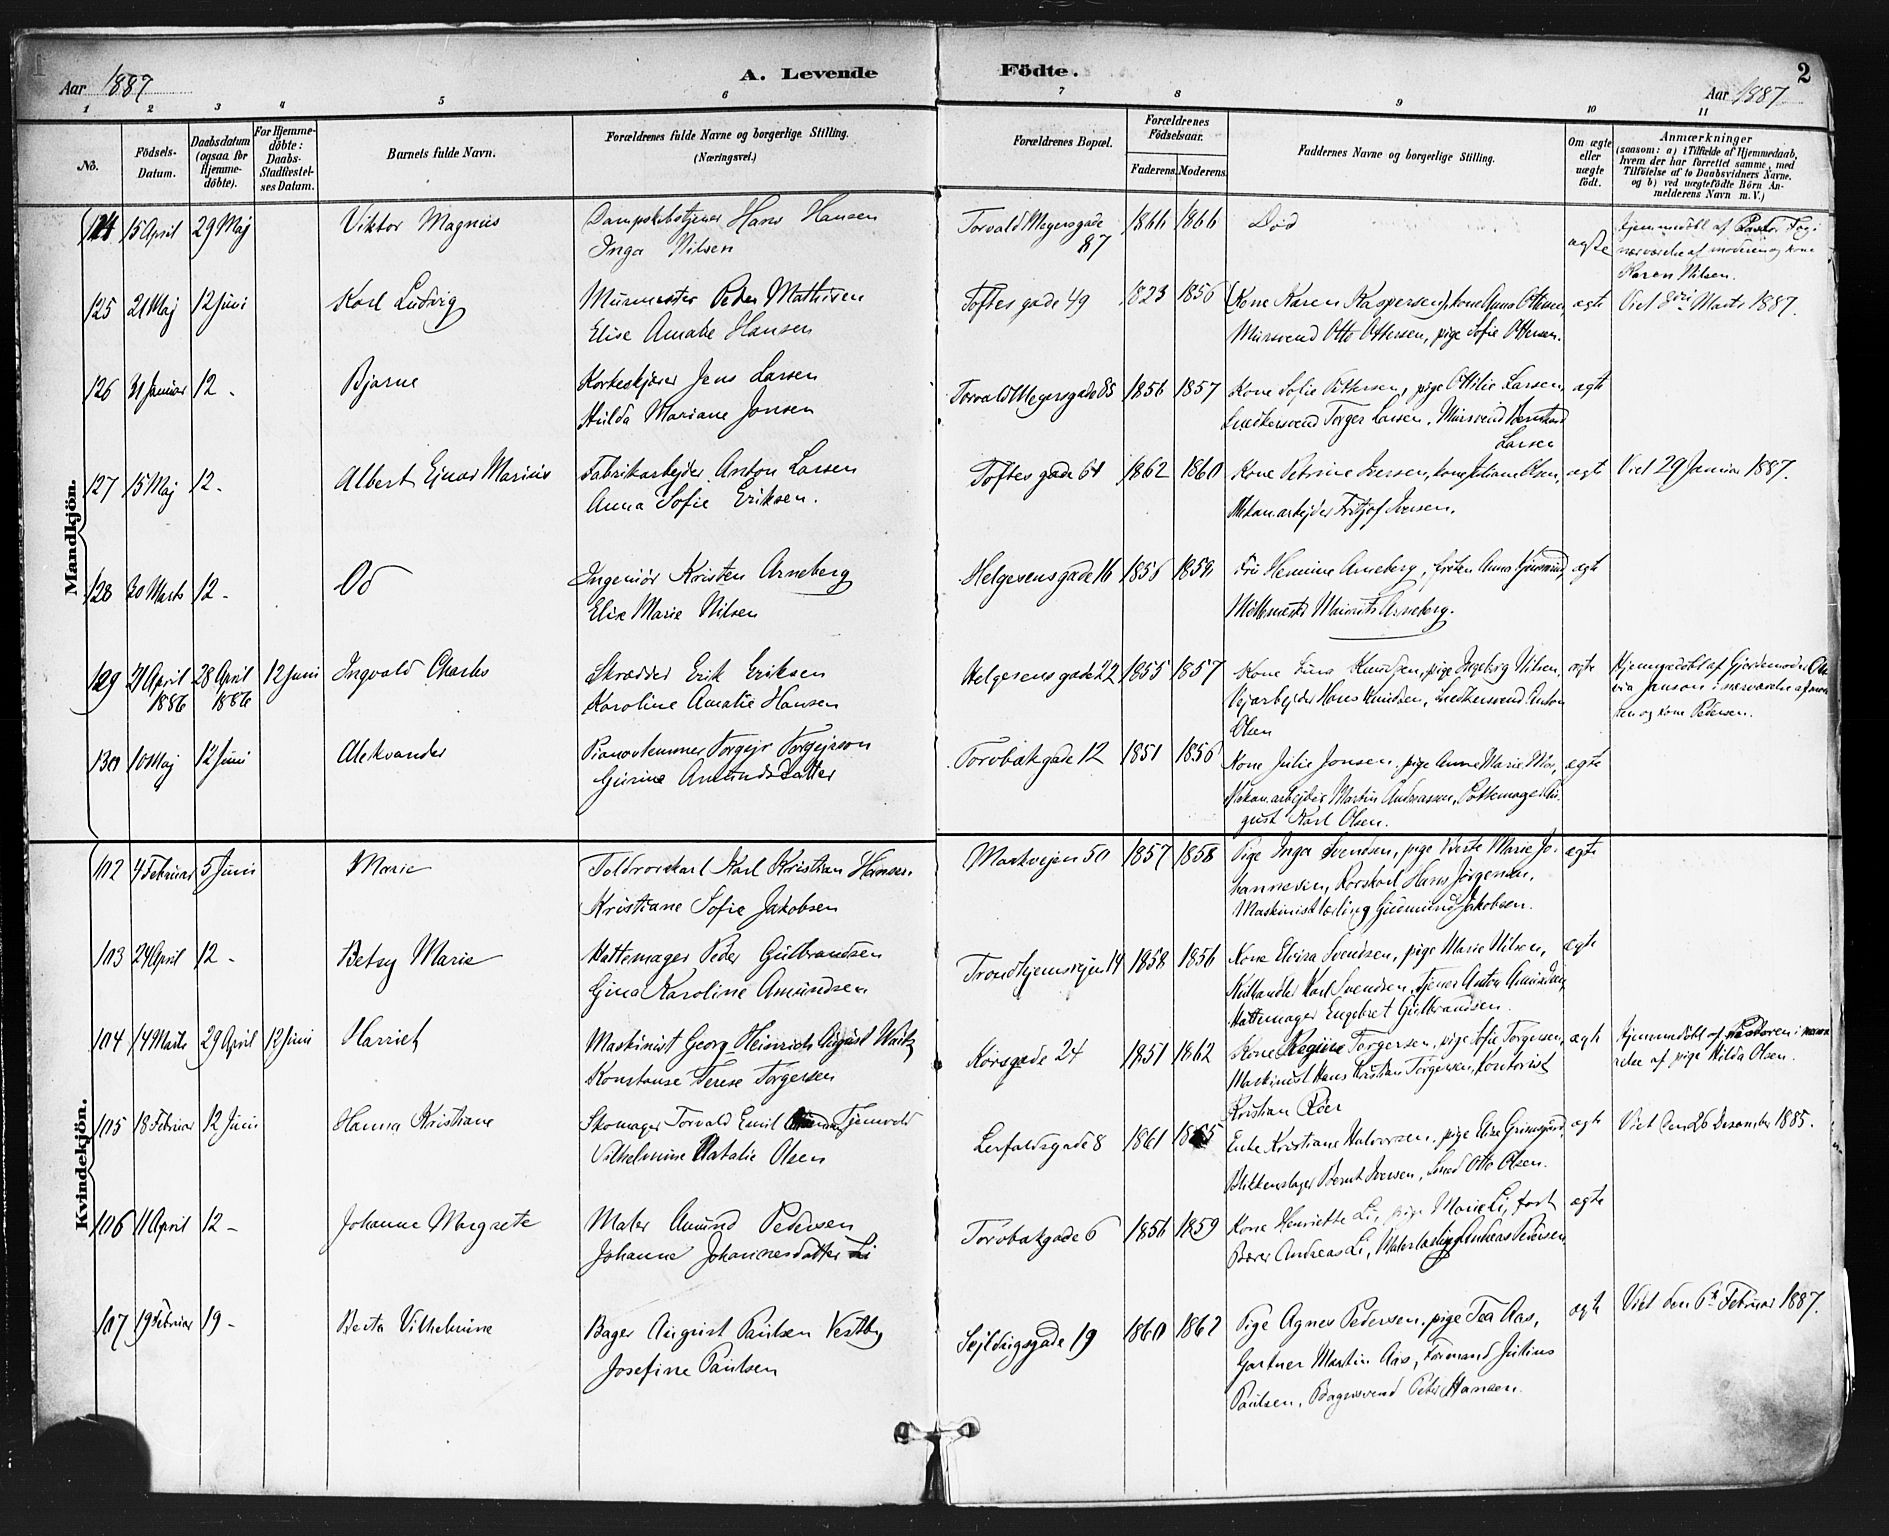 Aar 1887
A. Levende Födte.
2
Aar 1887
1 2 3 4 5 6 7 8 9 10 11
No.
Födsels-Datum.
Daabsdatum (ogsaa for Hjemme-döbte).
For Hjemme-döbte: Daabs-Stadfæstel-ses Datum.
Barnets fulde Navn.
Forældrenes fulde Navne og borgerlige Stilling. (Næringsvei.)
Forældrenes Bopæl.
Forældrenes Födselsaar.
Faderens. Moderens.
Faddernes Navne og borgerlige Stilling.
Om ægte eller uægte födt.
Anmærkninger
(saasom: a) i Tilfælde af Hjemmedaab, hvem der har forrettet samme, med Tilföielse af to Daabsvidners Navne. og b) ved uægtefödte Börn An-melderens Navn m. V.)
Mandkjön.
124 15 April 29 Maj Viktor Magnus Hans Hansen Torvald Meyersgade 1866 1866 Död ægte Hjemmedöbt af Pastor
Inga Nilsen 87
Karen Nilsen.
125 21 Maj 12 Juni Karl Ludvig Murmester Peder Mathisen Toftes gade 49 1823 1856 (Kone Karen Kaspersen), kone Anna Ottersen, ægte Viet Marts 1887.
Elise Amalie Hansen Mursvend Otto Ottersen, pige Sofie Ottersen.
126 31 Januar 12 - Bjarne Korkeskjærer Jens Larsen Torvald Meyersgade 88 1856 1857 Kone Sofie Pettersen, pige Ottilie Larsen, ægte
Hulda Mariane Jonsen Snedkersvend Torger Larsen, Mursvend Bernhard
Larsen
127 15 Maj 12 - Albert Ejnar Marius Fabrikarbejder Anton Larsen Toftes gade 64 1862 1860 Kone Petrine Iversen, kone Olsen, ægte Viet 29 Januar 1887.
Anna Sofie Eriksen. Mekan. arbejder Fritjof Iversen.
128 30 Marts 12 - Od Ingeniör Kristen Arneberg Helgesensgade 16 1856 Fru Hermine Arneberg, fröken Anna ægte
Elise Marie Nilsen Arneberg.
129 21 April 28 April 12 Juni Ingvald Charles Skrædder Erik Eriksen Helgesens gade 22 1855 1857 Kone Knudsen, pige Ingeborg Nilsen, ægte Hjemmedöbt af Gjordemoder
1886 1886 Karoline Amalie Hansen Vejarbejder Hans Knudsen, Snedkersvend Anton Janson i nærværelse af
Olsen og kone Pedersen.
130 10 Maj 12 Juni Aleksander Pianostemmer Torgejr Torgejrson Torvbakgade 12 1851 1856 Kone Julie Jonsen, pige Anne Marie Moe, ægte
Gurine Amundsdatter Mekan. arbejder Martin Andreassen, Pottemager Au-
gust Karl Olsen.
Kvindekjön.
102 4 Februar 5 Juni Marie Toldrorskarl Karl Kristian Hansen Markvejen 50 1857 1858 Pige Inga Svendsen, pige Berte Marie Jo- ægte
Kristiane Sofie Jakobsen hannesen, Rorskarl Hans Jörgensen,
Maskinistlærling Gudmund Jakobsen.
103 24 April 12 - Betsy Marie Hattemager Peder Gulbrandsen Trondhjemsvejen 14 1858 1856 Kone Elvisa Svendsen, pige Marie Nilsen, ægte
Gina Karoline Amundsen Karl Svendsen, tjener Anton Amundsen,
Hattemager Engebret Gulbrandsen.
104 14 Marts 29 April 12 Juni Harriet Maskinist Georg Heinrich August Korsgade 24 1851 1862 Kone Regine Torgersen, pige Sofie Torgersen, ægte Hjemmedöbt af Pastoren i
Konstanse Terese Torgersen Maskinist Hans Kristian Torgersen, Kontorist af pige Hilda Olsen.
Kristian Röer
105 18 Februar 12 Juni Hanna Kristiane Skomager Torvald Emil Lerfaldsgade 8 1861 Enke Kristiane Halvorsen, pige Elise ægte Viet den 26 Desember 1885.
Vilhelmine Natalie Olsen Blikkenslager Bernt Iversen, Smed Otto Olsen.
106 11 April 12 - Johanne Margrete Maler Amund Pedersen Torvbakgade 6 1856 1859 Kone Henriette Li, pige Marie Li, ægte
Johanne Johannesdatter Li Bærer Andreas Li, Malerlærling Andreas Pedersen,
107 19 Februar 19 - Berta Vilhelmine Bager August Paulsen Vestby Sejldugsgade 19 1860 1862 Pige Agnes Pedersen, pige Tea Aas, ægte Viet den 6te Februar 1887.
Josefine Paulsen Gartner Martin Aas, Formand Julius
Paulsen, Bagersvend Peter Hansen.